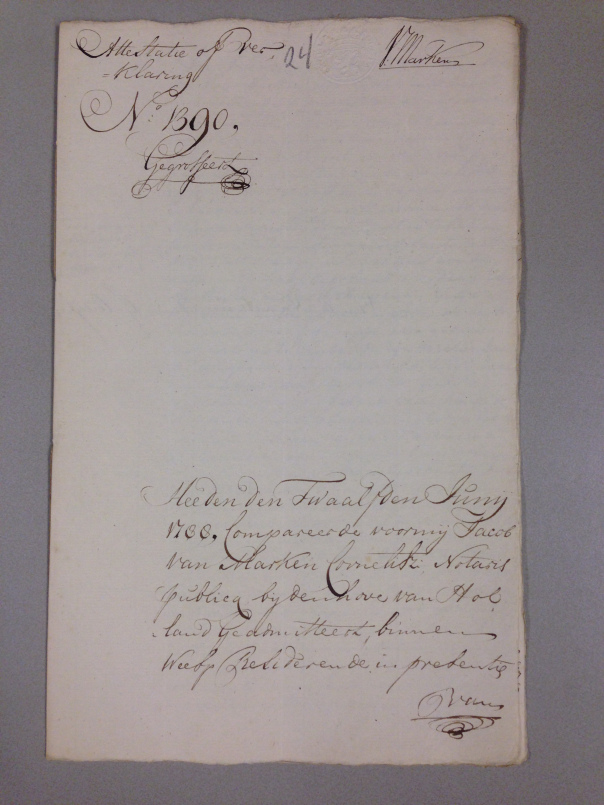 Attestatie of Ver
=klaring
24
V: Marken
No: 1390.
Gegrosseert
Heeden den Twaalfden Juny
1788. Compareerde voor mij Jacob
van Marken Cornelisz: Notaris
Publicq by den hove van Hol
land Geadmitteert, binnen
Weesp Resideerende in presentie
van